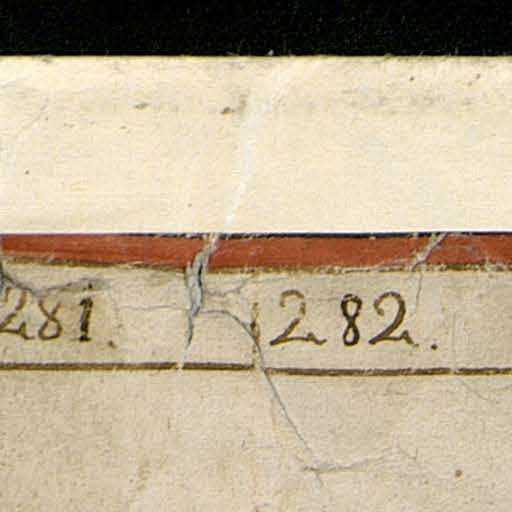 281. 282.